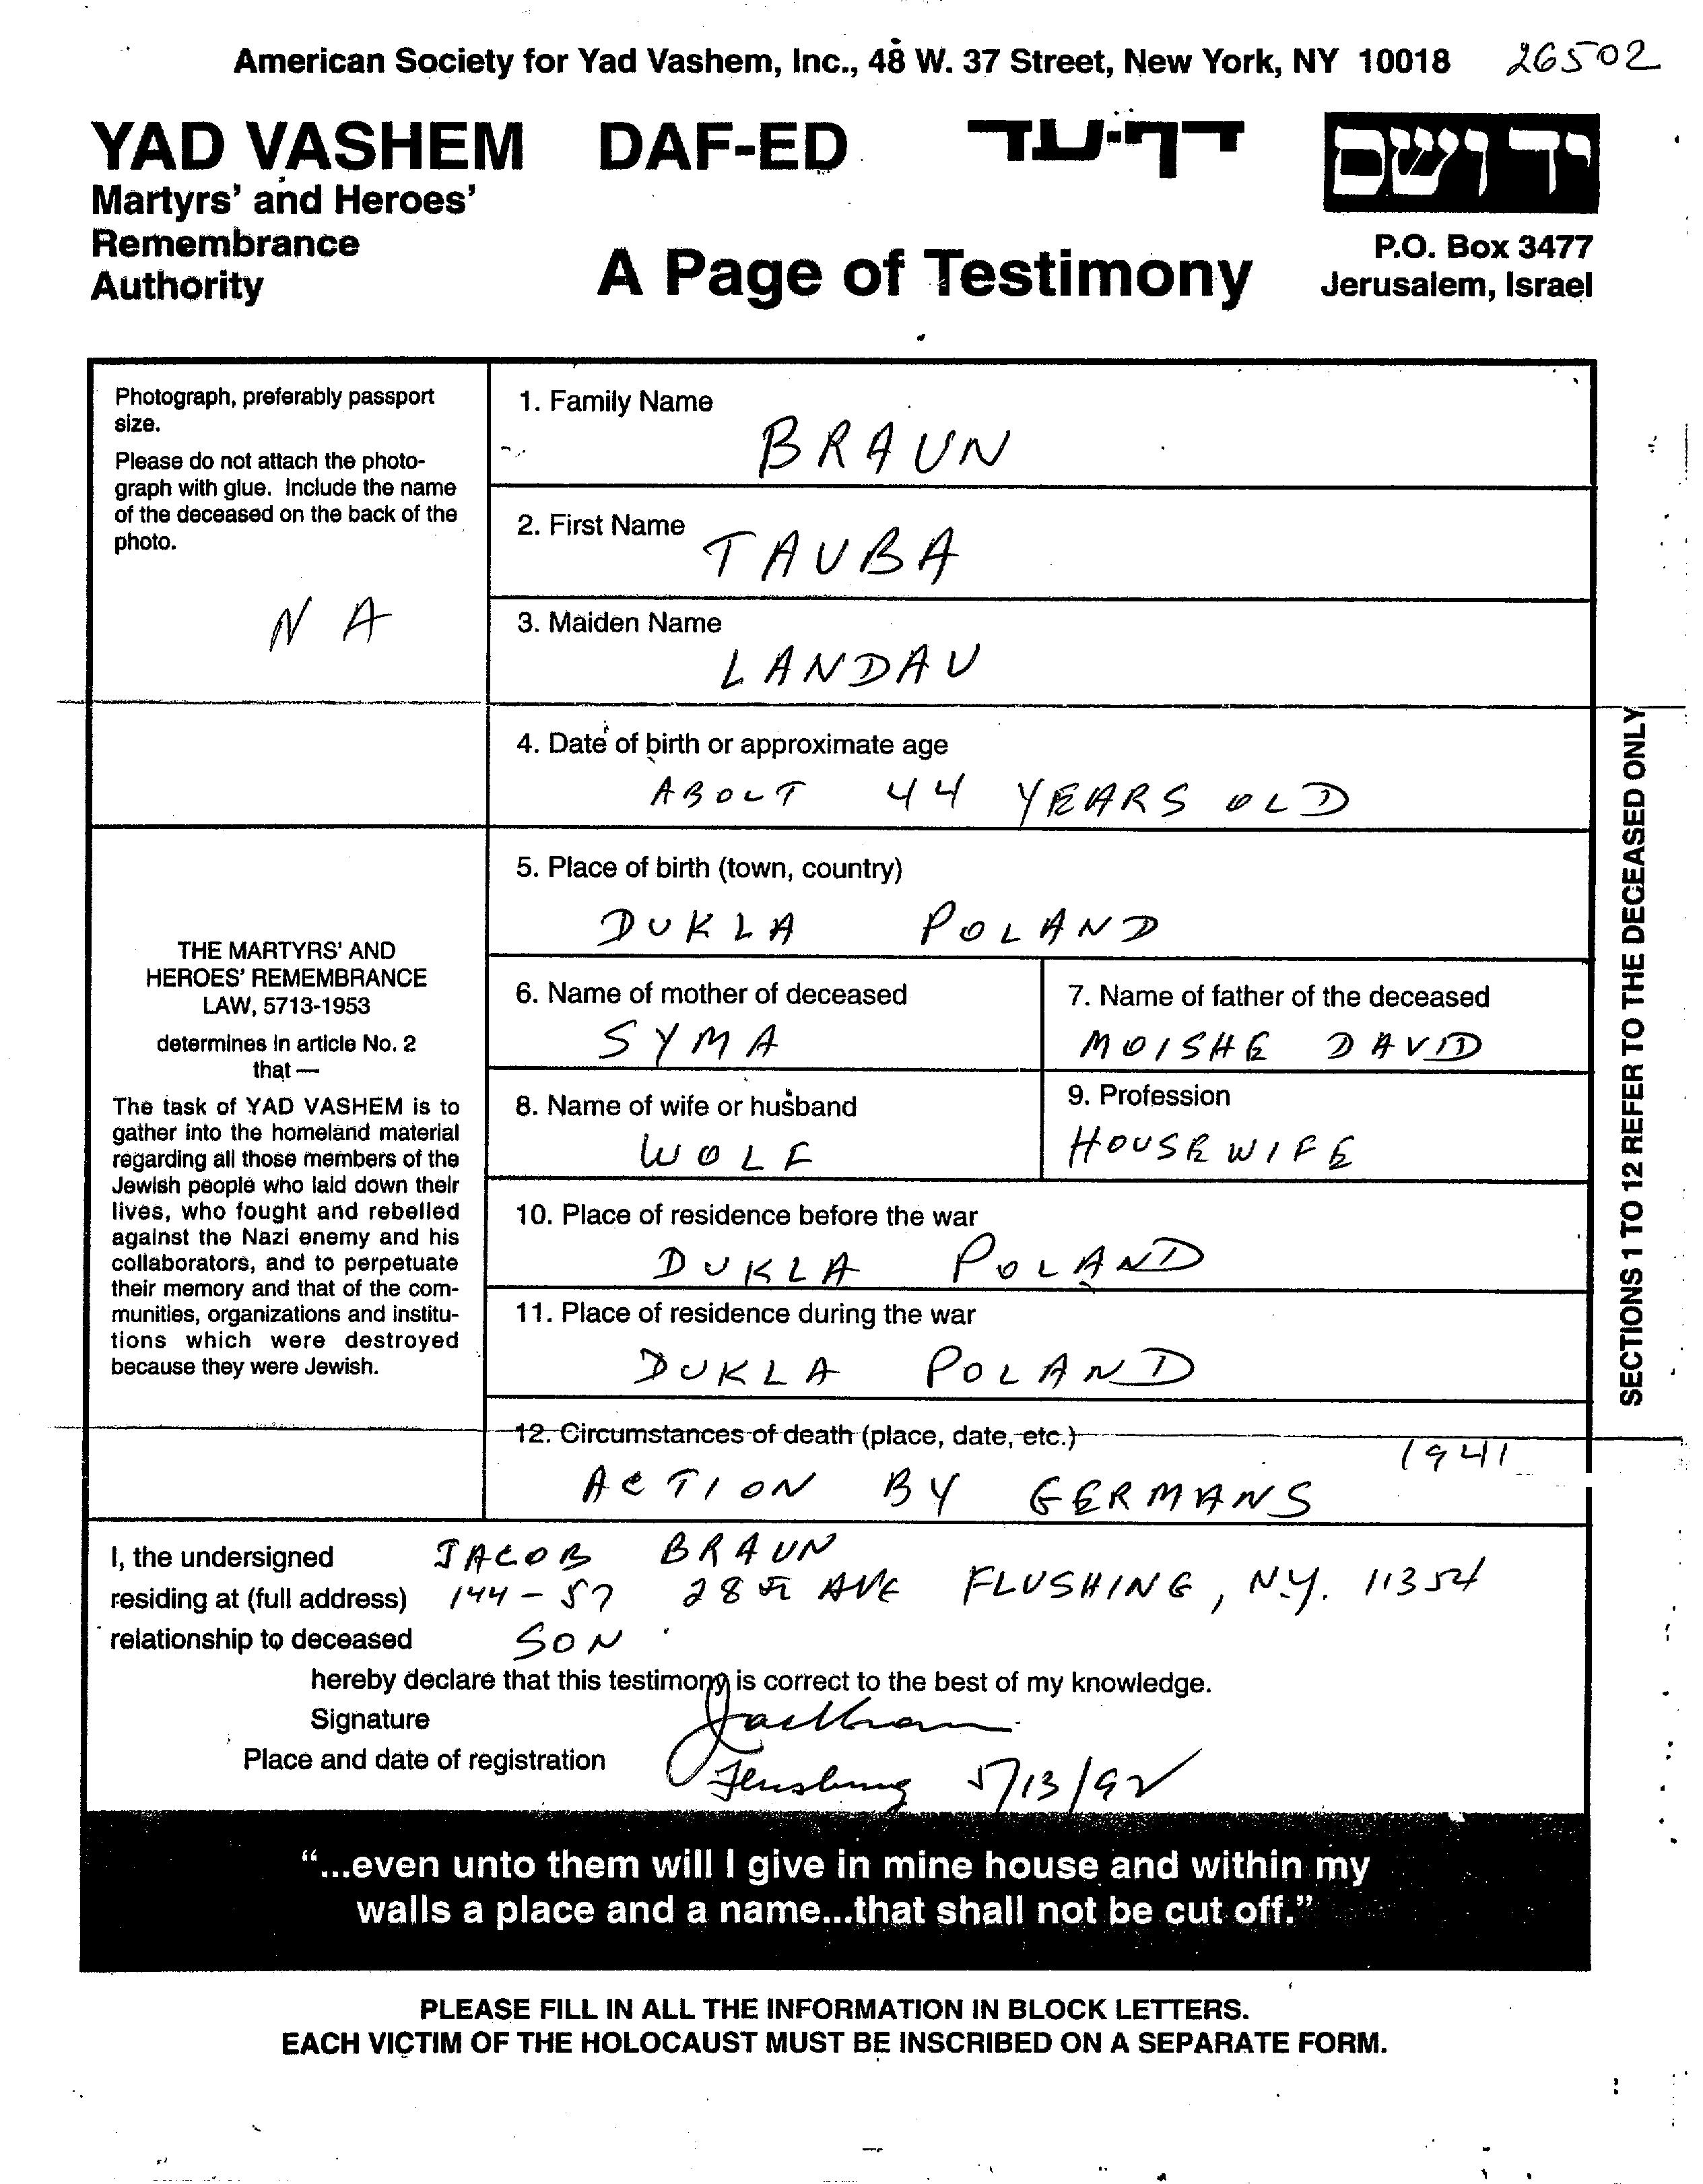 American Society for Yad Vashem, Inc., 48 W. 37 Street, New York, NY 10018 26502
YAD VASHEM DAF-ED דף-עד יד ושם
Martyrs' and Heroes'
Remembrance
Authority
A Page of Testimony
P.O. Box 3477
Jerusalem, Israel
Photograph, preferably passport
size.
Please do not attach the photo-
graph with glue. Include the name
of the deceased on the back of the
photo.
N A
THE MARTYRS' AND
HEROES' REMEMBRANCE
LAW, 5713-1953
determines in article No. 2
that —
The task of YAD VASHEM is to
gather into the homeland material
regarding all those members of the
Jewish people who laid down their
lives, who fought and rebelled
against the Nazi enemy and his
collaborators, and to perpetuate
their memory and that of the com-
munities, organizations and institu-
tions which were destroyed
because they were Jewish.
1. Family Name
BRAUN
2. First Name
TAUBA
3. Maiden Name
LANDAU
4. Date of birth or approximate age
ABOUT 44 YEARS OLD
5. Place of birth (town, country)
DUKLA POLAND
6. Name of mother of deceased
SYMA
7. Name of father of the deceased
MOISHE DAVID
8. Name of wife or husband
WOLF
9. Profession
HOUSEWIFE
10. Place of residence before the war
DUKLA POLAND
11. Place of residence during the war
DUKLA POLAND
12. Circumstances of death (place, date, etc.)
1941
ACTION BY GERMANS
SECTIONS 1 TO 12 REFER TO THE DECEASED ONLY
I, the undersigned JACOB BRAUN
residing at (full address) 144-57 28th AVE FLUSHING, N.Y. 11354
relationship to deceased SON
hereby declare that this testimony is correct to the best of my knowledge.
Signature
Place and date of registration 5/13/92
“...even unto them will I give in mine house and within my
walls a place and a name...that shall not be cut off.”
PLEASE FILL IN ALL THE INFORMATION IN BLOCK LETTERS.
EACH VICTIM OF THE HOLOCAUST MUST BE INSCRIBED ON A SEPARATE FORM.